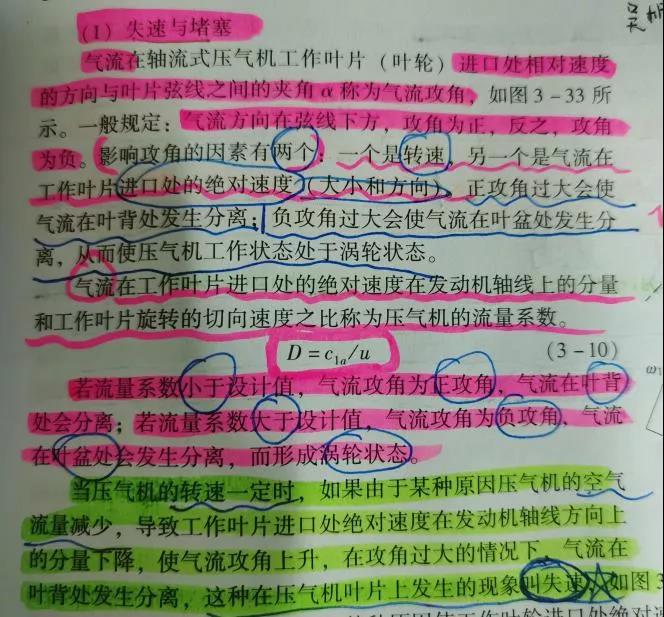 (1) 失速与堵塞
气流在轴流式压气机工作叶片（叶轮）进口处相对速度
的方向与叶片弦线之间的夹角 α 称为气流攻角，如图 3-33 所
示。一般规定：气流方向在弦线下方，攻角为正，反之，攻角
为负。影响攻角的因素有两个：一个是转速，另一个是气流在
工作叶片进口处的绝对速度（大小和方向）。正攻角过大会使
气流在叶背处发生分离；负攻角过大会使气流在叶盆处发生分
离，从而使压气机工作状态处于涡轮状态。
气流在工作叶片进口处的绝对速度在发动机轴线上的分量
和工作叶片旋转的切向速度之比称为压气机的流量系数。
D = c1a/u (3-10)
若流量系数小于设计值，气流攻角为正攻角，气流在叶背
处会分离；若流量系数大于设计值，气流攻角为负攻角，气流
在叶盆处会发生分离，而形成涡轮状态。
当压气机的转速一定时，如果由于某种原因压气机的空气
流量减少，导致工作叶片进口处绝对速度在发动机轴线方向上
的分量下降，使气流攻角上升，在攻角过大的情况下，气流在
叶背处发生分离，这种在压气机叶片上发生的现象叫失速，如图 3